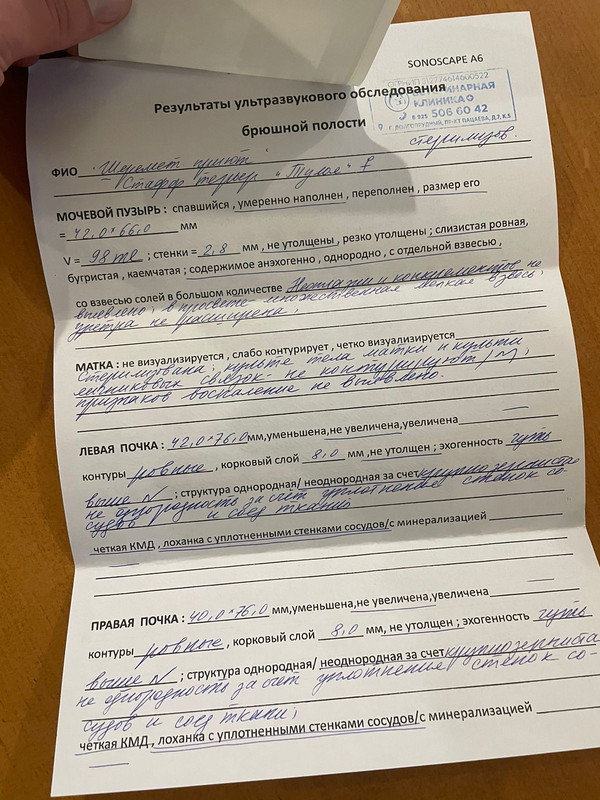 SONOSCAPE A6
Результаты ультразвукового обследования
брюшной полости
КЛИНИКА
8 925 506 60 42
Г. ДОЛГОПРУДНЫЙ, ПР-КТ ПАЦАЕВА, Д.7, К.5
ФИО Шеремет приют
Стафф терьер "Тулья" f
стерилизов.
МОЧЕВОЙ ПУЗЫРЬ : спавшийся , умеренно наполнен , переполнен , размер его
= 42,0*66,0 мм
V = 98 ml ; стенки = 2,8 мм , не утолщены , резко утолщены ; слизистая ровная,
бугристая , каемчатая ; содержимое анэхогенно , однородно , с отдельной взвесью ,
со взвесью солей в большом количестве Неоплазии и конкрементов не
выявлено, в просвете множественная мелкая взвесь,
уретра не расширена;
МАТКА : не визуализируется , слабо контурирует , четко визуализируется
Стерилизована; культе тела матки и культи
яичниковых связок - не контурируют /N/,
признаков воспаления не выявлено.
ЛЕВАЯ ПОЧКА : 42,0*76,0 мм,уменьшена,не увеличена,увеличена
контуры ровные , корковый слой 8,0 мм ,не утолщен ; эхогенность чуть
выше N ; структура однородная/ неоднородная за счет крупнозернистая
неоднородность за счет уплотнения стенок со-
судов и соед ткани
четкая КМД , лоханка с уплотненными стенками сосудов/с минерализацией
ПРАВАЯ ПОЧКА : 40,0*76,0 мм,уменьшена,не увеличена,увеличена
контуры ровные , корковый слой 8,0 мм, не утолщен ; эхогенность чуть
выше N ; структура однородная/ неоднородная за счет крупнозерниста
неоднородность за счет уплотнения стенок со-
судов и соед ткани;
четкая КМД , лоханка с уплотненными стенками сосудов/с минерализацией